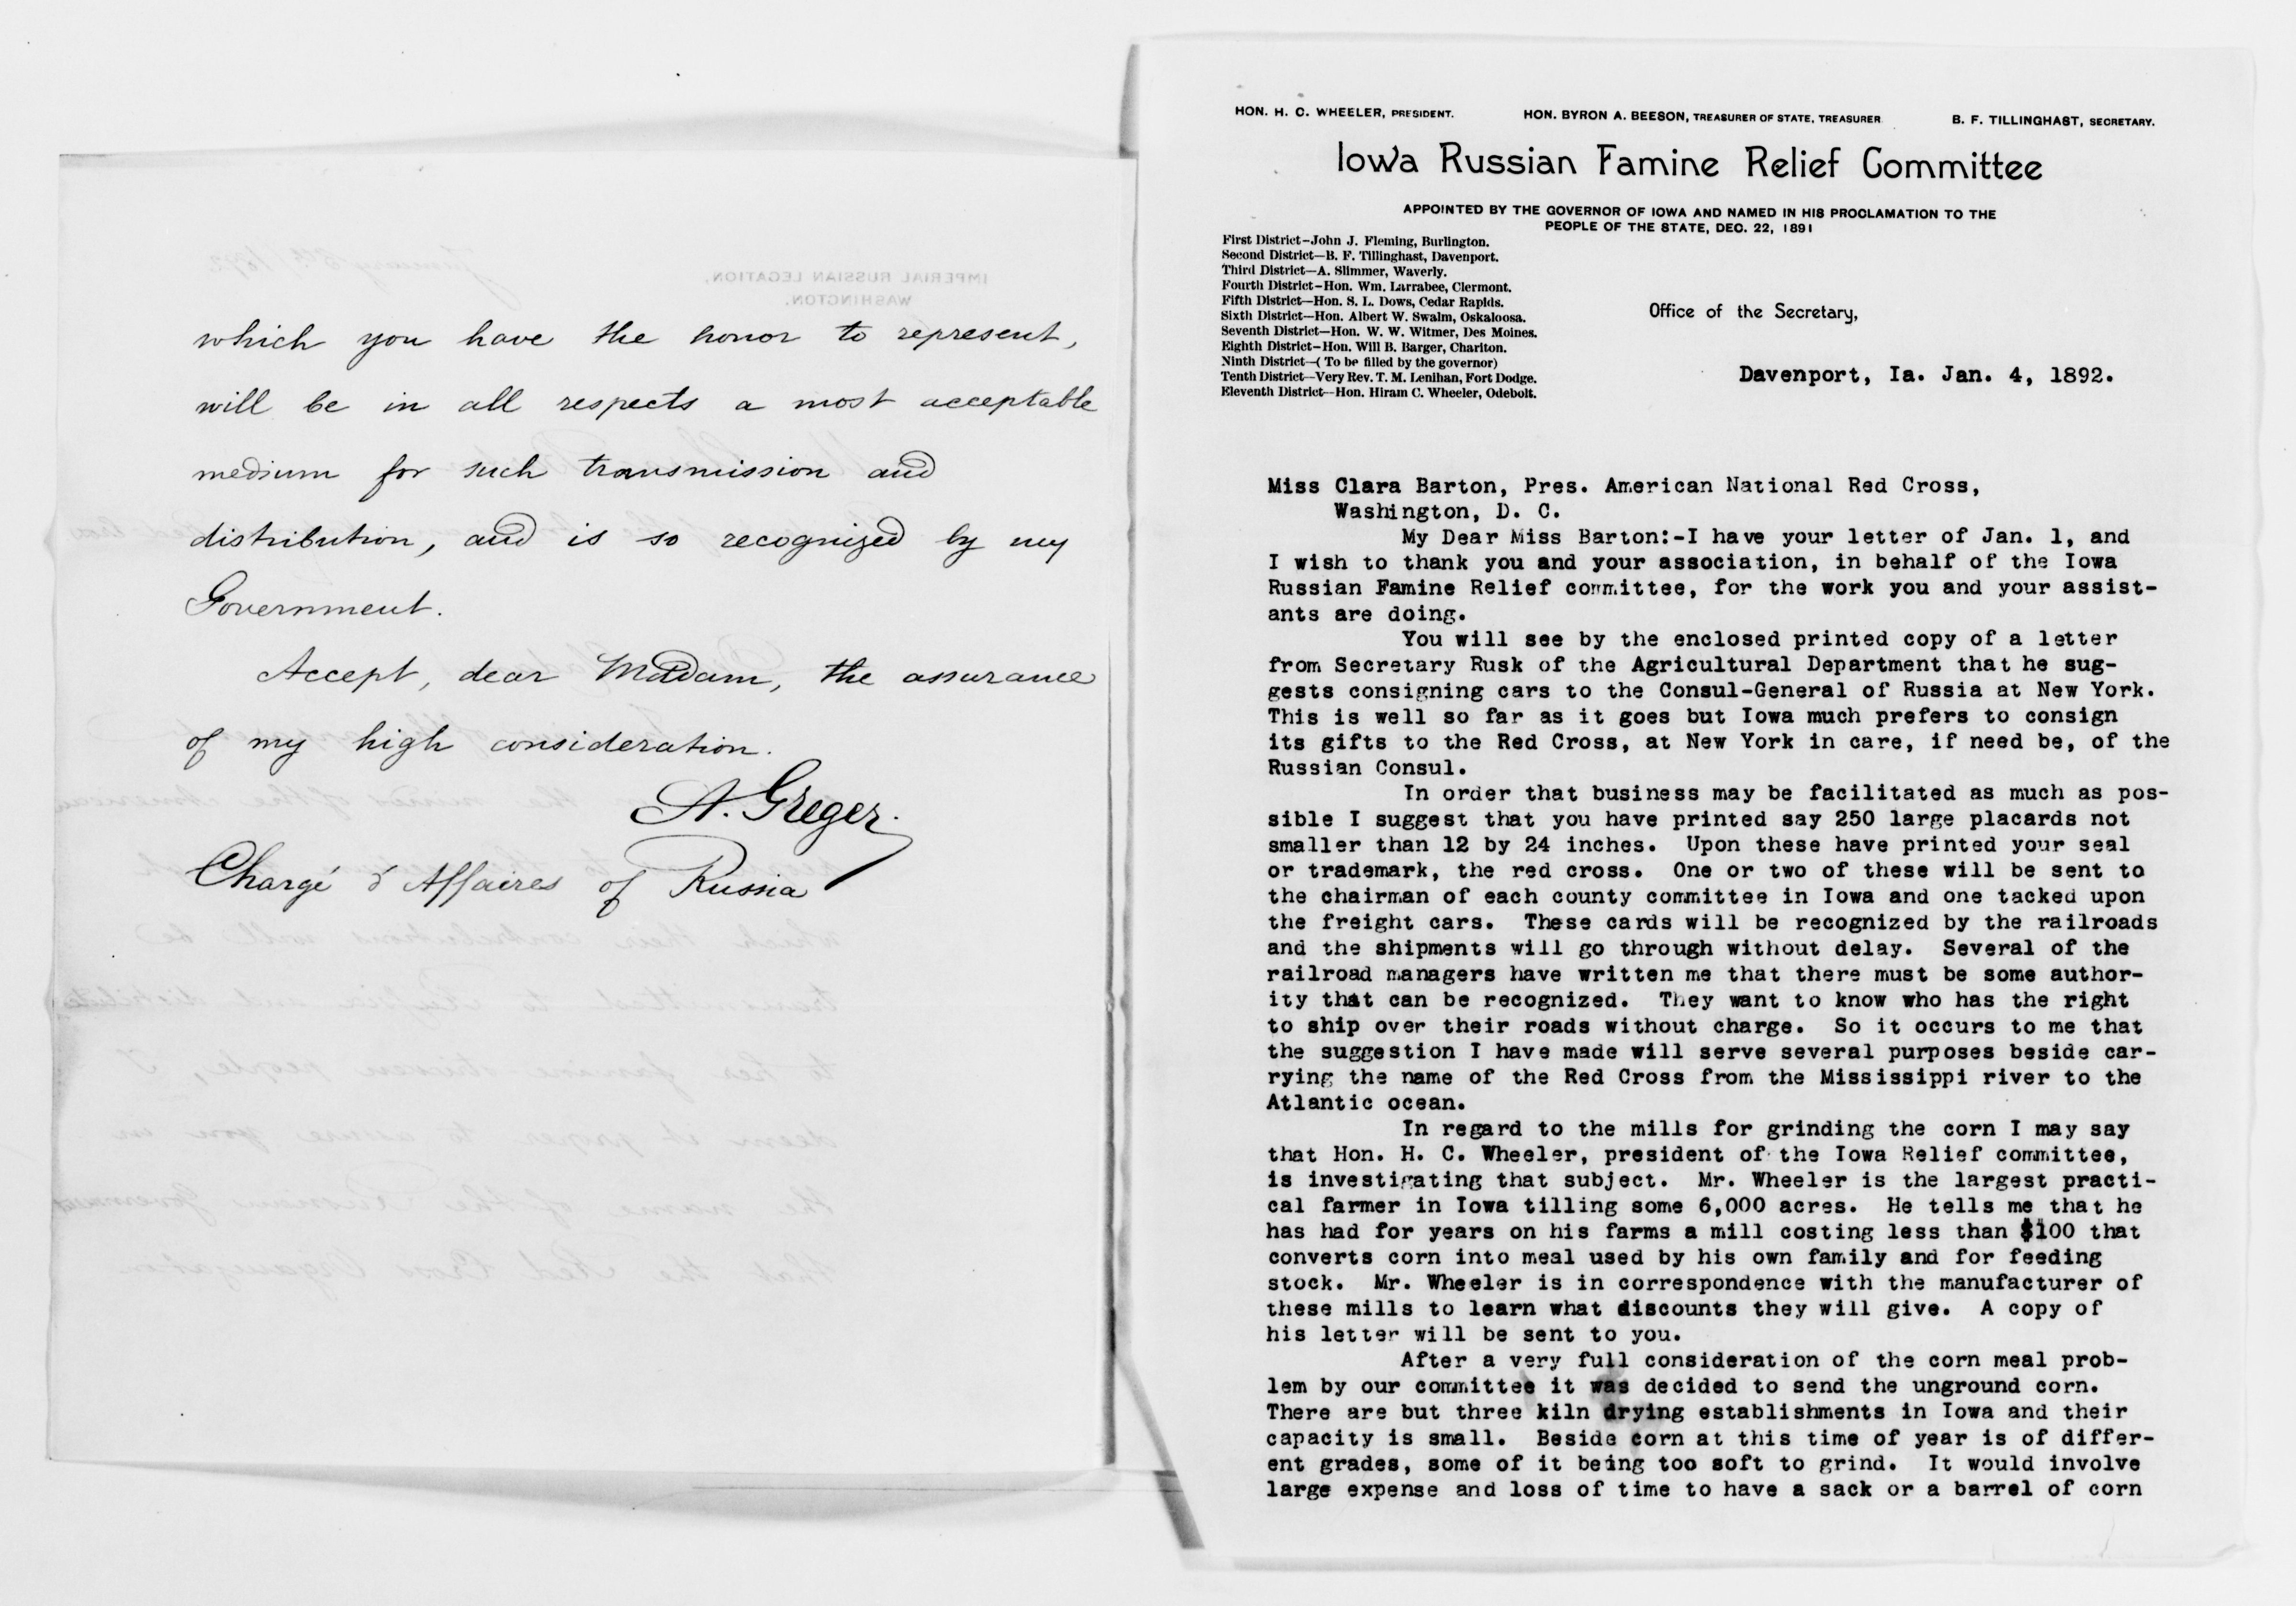 which you have the honor to represent,
will be in all respects a most acceptable
medium for such transmission and
distribution, and is so recognized by my
Government.
Accept, dear Madam, the assurance
of my high consideration.
A. Greger.
Chargé d'Affaires of Russia
IMPERIAL RUSSIAN LEGATION.
WASHINGTON.
HON. H. C. WHEELER, PRESIDENT. HON. BYRON A. BEESON, TREASURER OF STATE, TREASURER B. F. TILLINGHAST, SECRETARY.
Iowa Russian Famine Relief Committee
APPOINTED BY THE GOVERNOR OF IOWA AND NAMED IN HIS PROCLAMATION TO THE
PEOPLE OF THE STATE, DEC. 22, 1891
First District—John J. Fleming, Burlington.
Second District—B. F. Tillinghast, Davenport.
Third District—A. Slimmer, Waverly.
Fourth District—Hon. Wm. Larrabee, Clermont.
Fifth District—Hon. S. L. Dows, Cedar Rapids.
Sixth District—Hon. Albert W. Swalm, Oskaloosa.
Seventh District—Hon. W. W. Witmer, Des Moines.
Eighth District—Hon. Will B. Barger, Chariton.
Ninth District—( To be filled by the governor)
Tenth District—Very Rev. T. M. Lenihan, Fort Dodge.
Eleventh District—Hon. Hiram C. Wheeler, Odebolt.
Office of the Secretary,
Davenport, Ia. Jan. 4, 1892.
Miss Clara Barton, Pres. American National Red Cross,
Washington, D. C.
My Dear Miss Barton:-I have your letter of Jan. 1, and
I wish to thank you and your association, in behalf of the Iowa
Russian Famine Relief committee, for the work you and your assist-
ants are doing.
You will see by the enclosed printed copy of a letter
from Secretary Rusk of the Agricultural Department that he sug-
gests consigning cars to the Consul-General of Russia at New York.
This is well so far as it goes but Iowa much prefers to consign
its gifts to the Red Cross, at New York in care, if need be, of the
Russian Consul.
In order that business may be facilitated as much as pos-
sible I suggest that you have printed say 250 large placards not
smaller than 12 by 24 inches. Upon these have printed your seal
or trademark, the red cross. One or two of these will be sent to
the chairman of each county committee in Iowa and one tacked upon
the freight cars. These cards will be recognized by the railroads
and the shipments will go through without delay. Several of the
railroad managers have written me that there must be some author-
ity that can be recognized. They want to know who has the right
to ship over their roads without charge. So it occurs to me that
the suggestion I have made will serve several purposes beside car-
rying the name of the Red Cross from the Mississippi river to the
Atlantic ocean.
In regard to the mills for grinding the corn I may say
that Hon. H. C. Wheeler, president of the Iowa Relief committee,
is investigating that subject. Mr. Wheeler is the largest practi-
cal farmer in Iowa tilling some 6,000 acres. He tells me that he
has had for years on his farms a mill costing less than $100 that
converts corn into meal used by his own family and for feeding
stock. Mr. Wheeler is in correspondence with the manufacturer of
these mills to learn what discounts they will give. A copy of
his letter will be sent to you.
After a very full consideration of the corn meal prob-
lem by our committee it was decided to send the unground corn.
There are but three kiln drying establishments in Iowa and their
capacity is small. Beside corn at this time of year is of differ-
ent grades, some of it being too soft to grind. It would involve
large expense and loss of time to have a sack or a barrel of corn